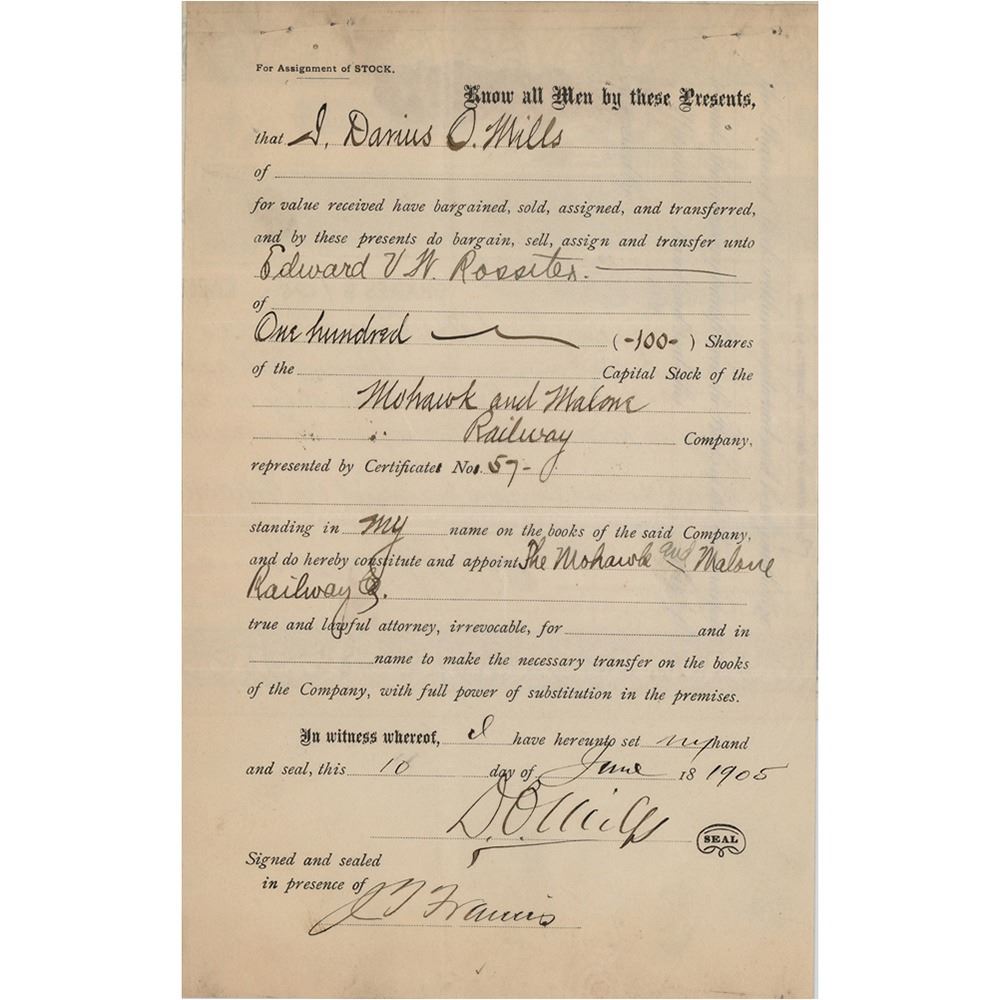 For Assignment of STOCK.
Know all Men by these Presents,
that I, Darius O. Mills
of
for value received have bargained, sold, assigned, and transferred,
and by these presents do bargain, sell, assign and transfer unto
Edward V W. Rossiter.
of
One hundred (-100-) Shares
of the Capital Stock of the
Mohawk and Malone
Railway Company,
represented by Certificate No. 57-
standing in my name on the books of the said Company,
and do hereby constitute and appoint The Mohawk and Malone
Railway Co.
true and lawful attorney, irrevocable, for and in
name to make the necessary transfer on the books
of the Company, with full power of substitution in the premises.
In witness whereof, I have hereunto set my hand
and seal, this 10 day of June 18 1905
D. O. Mills SEAL
Signed and sealed
in presence of
J T Francis